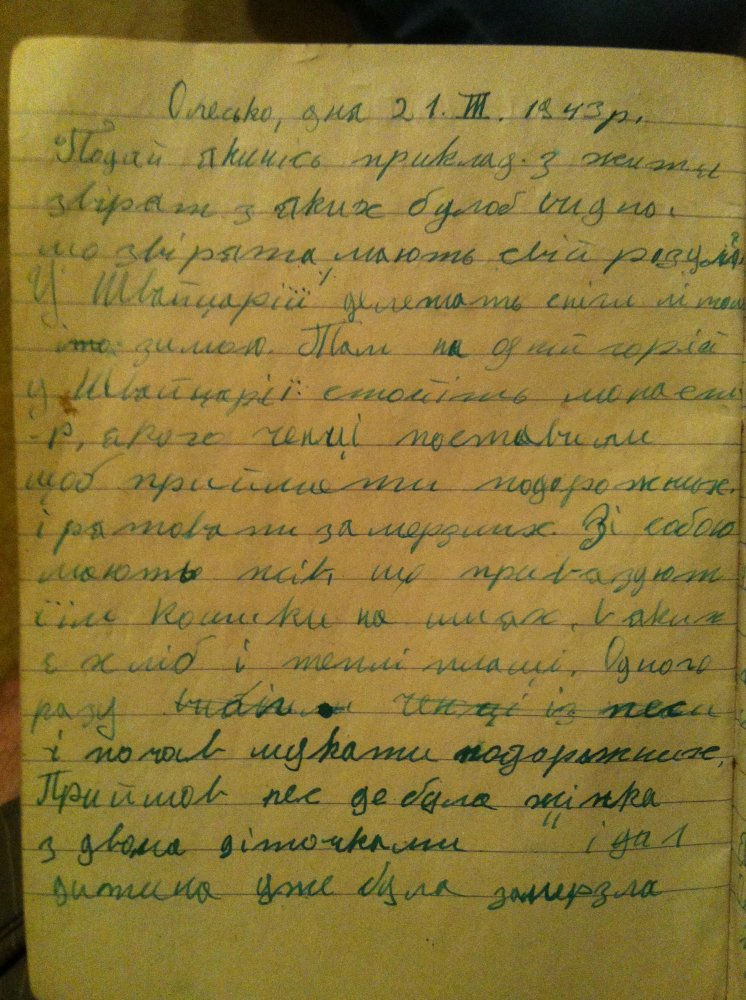 Олесько, дна 21. III. 1943р.
Подай якийсь приклад з життя
звірят з яких булоб видно,
що звірята мають свій розум.
У Швайцарії де лежать сніги літом
і зимою. Там на одній горі
у Швайцарії стоїть монасти
-р, якого ченці поставили
щоб приймати подорожних
і ратовати замерзлих. Зі собою
мають псів, що привязують
їїм кошики на шиях, в яких
є хліб і теплі плащі. Одного
разу вибіг ченці із песи
і почав шукати подорожних.
Прийшов пес де була жінка
з двома діточками і да 1
дитина уже була замерзла